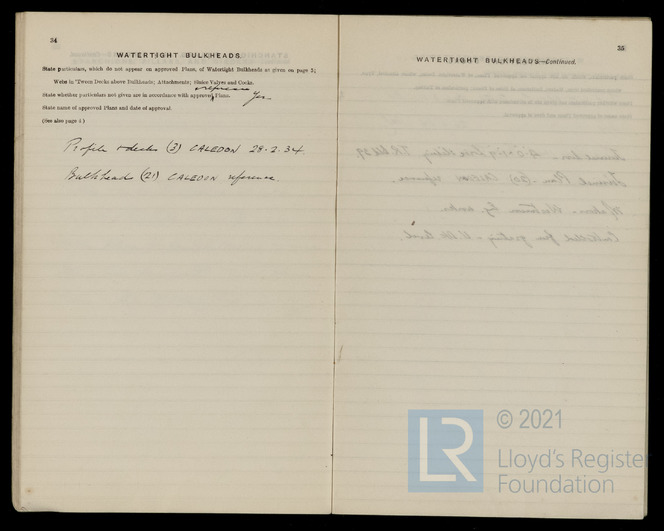 34
WATERTIGHT BULKHEADS.
State particulars, which do not appear on approved Plans, of Watertight Bulkheads as given on page 3;
Webs in 'Tween Decks above Bulkheads; Attachments; Sluice Valves and Cocks.
reference
State whether particulars not given are in accordance with approved Plans. Yes
State name of approved Plans and date of approval.
(See also page 4.)
Profile & decks (3) CALEDON 28.2.34.
Bulkheads (21) CALEDON reference.
35
WATERTIGHT BULKHEADS—Continued.
© 2021
LR
Lloyd's Register
Foundation